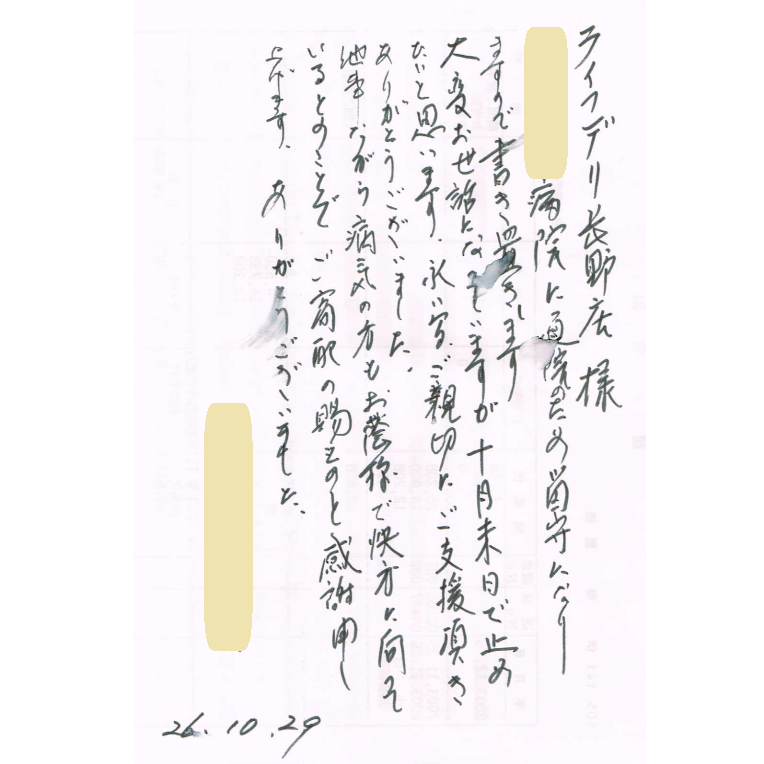 ライフデリ長野店様
病院に通院のため留守になり
ますので書き置きします
大変お世話になっていますが十月末日で止め
たいと思います、永い間、ご親切にご支援頂き
ありがとうございました、
他事ながら病気の方もお蔭様で快方に向って
いるとのことでご高配の賜ものと感謝申し
上げます、ありがとうございました、
26.10.29